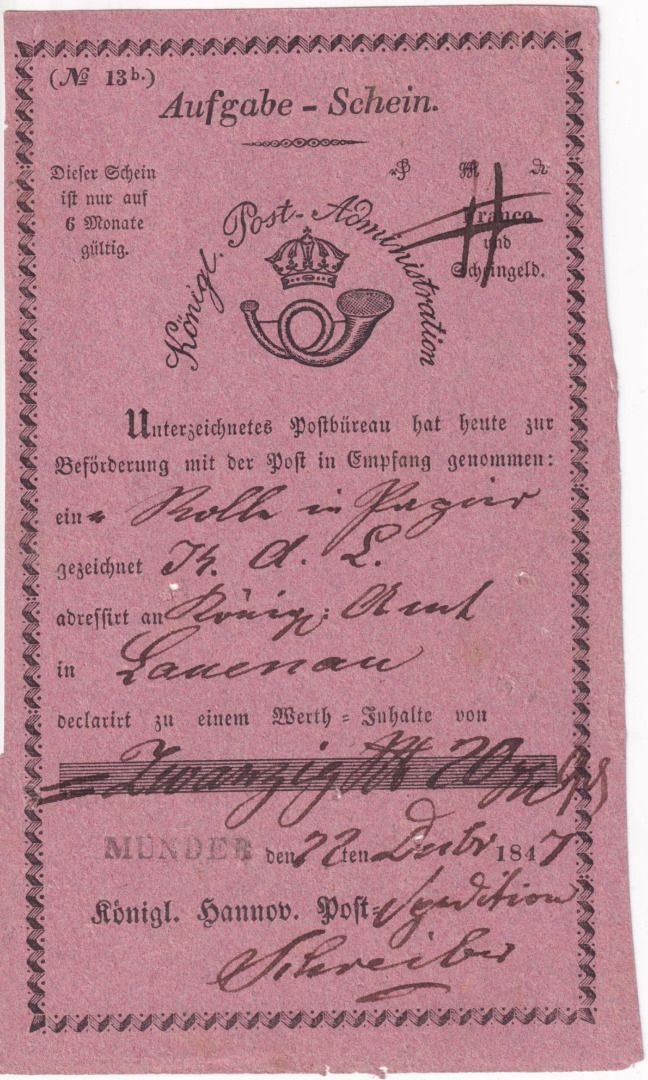 (№ 13b.)
Aufgabe - Schein.
Dieser Schein
ist nur auf
6 Monate
gültig.
Franco
und
Scheingeld.
Königl. Post-Administration
Unterzeichnetes Postbüreau hat heute zur
Beförderung mit der Post in Empfang genommen:
ein Rolle in Papier
gezeichnet K. A. L.
adressirt an Königl: Amt
in Lauenau
declarirt zu einem Werth = Inhalte von
Zwanzig 20
MÜNDER den 22ten Decbr 1847
Königl. Hannov. Post-Spedition
Schreiber